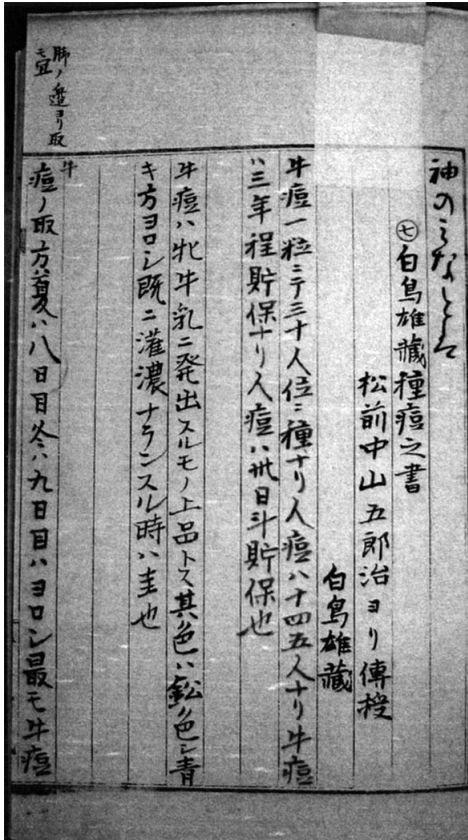 神のみなしとは
㊆白鳥雄蔵種痘之書
松前中山五郎治ヨリ傳授
白鳥雄蔵
牛痘一粒ニテ三十人位ニ種ナリ人痘ハ十四五人ナリ牛痘
ハ三年程貯保ナリ人痘ハ卅日斗貯保也
牛痘ハ牝牛乳ニ発出スルモノ上品トス其色ハ鉛ノ色シ青
キ方ヨロシ既ニ灌濃ナランスル時ハ圭也
牛
痘ノ取方夏ハ八日目冬ハ九日目ハヨロシ最モ牛痘
脚ノ邉ヨリ取
モ宜